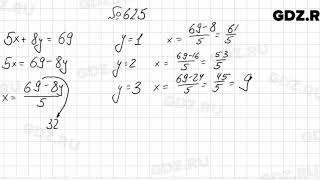 №625
GDZ.R
5x + 8y = 69
5x = 69 - 8y
x = (69 - 8y)/5
32
y = 1 x = (69-8)/5 = 61/5
y = 2 x = (69-16)/5 = 53/5
y = 3 x = (69-24)/5 = 45/5 = 9